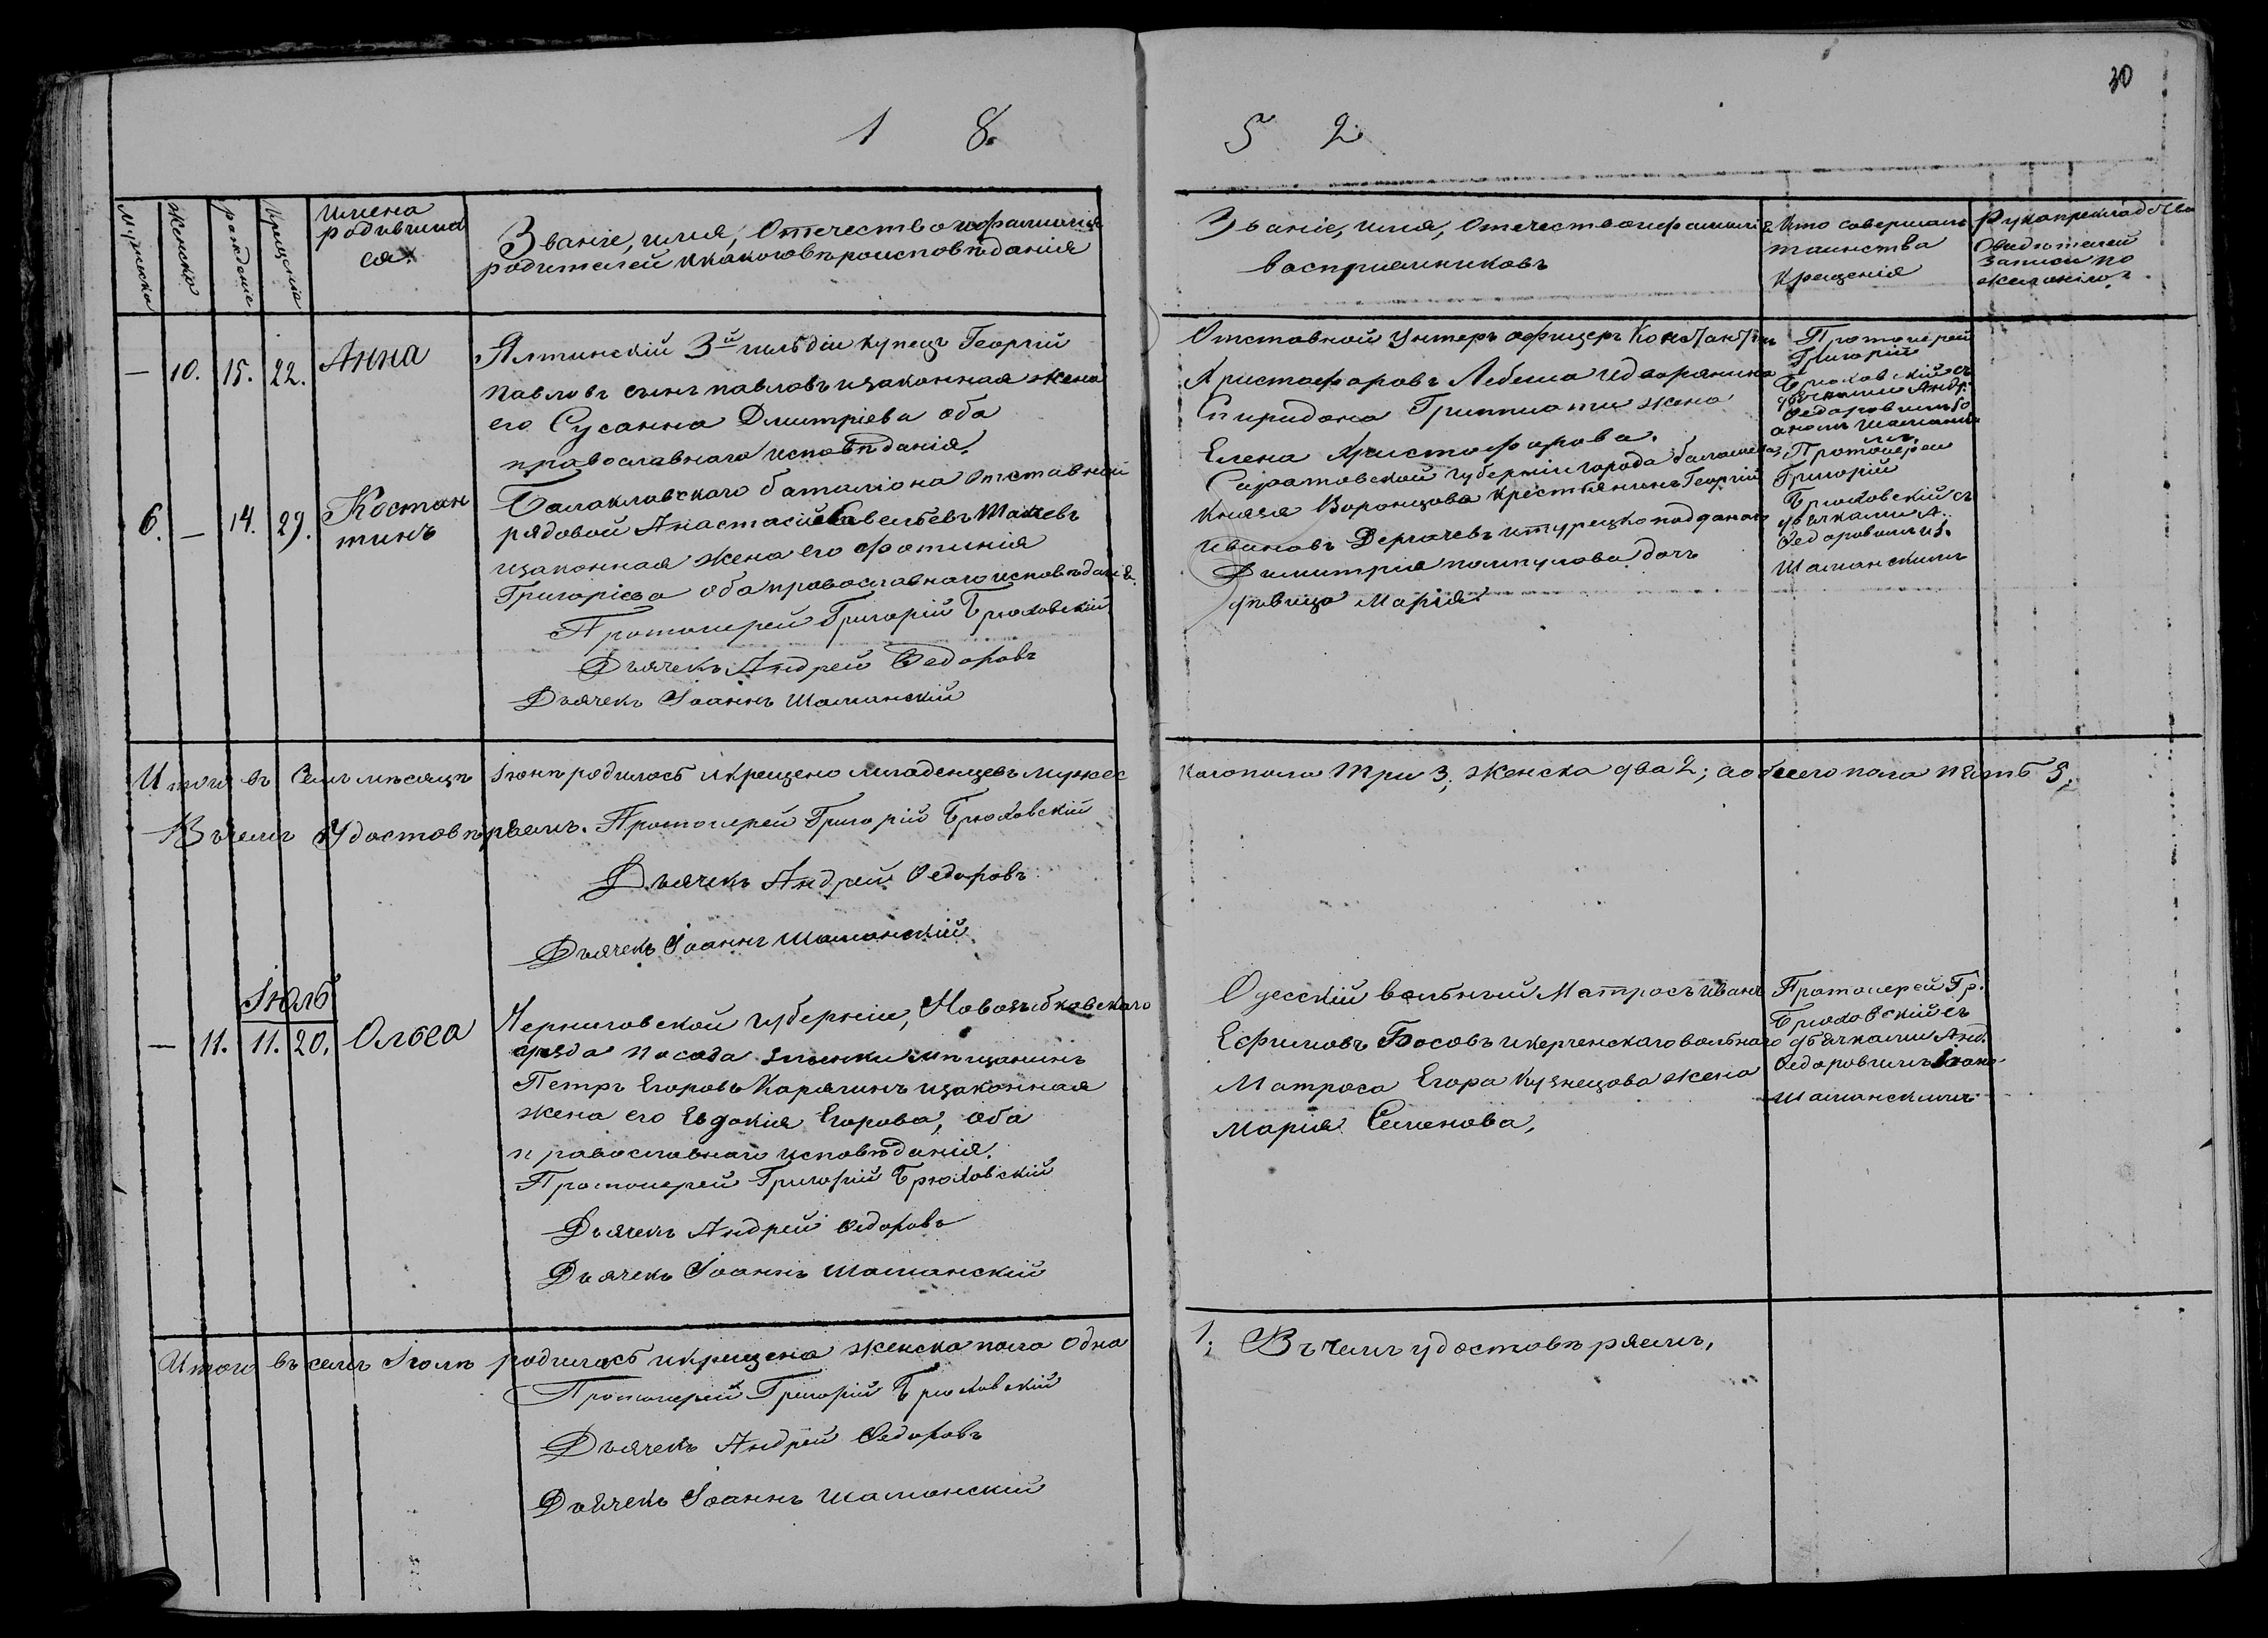 30
1 8
5 2
Мужеска
Женска
рождение
Крещение
имена
родившихъ
ся.
Званіе, имя, Отечество и фамилія
родителей и какого вѣроисповѣданія
Званіе, имя, отечество и фамилія
восприемниковъ
Кто совершалъ
таинства
Крещенія
Рукоприкладство
Свидетелей
записи по
желанію
— 10. 15. 22. Анна
Ялтинскій 3й гильдіи купецъ Георгій
Павловъ сынъ павловъ изаконная жена
его Сусанна Дмитріева оба
православнаго исповѣданія,
Отставной Унтеръ офицеръ Константинъ
Христофоровъ Лебеша и дворянина
Спиридона жена
Елена Христофорова.
Протоиерей
Григорій
Брюховскій съ
дьячками Андр.
Федоровимъ
6. — 14. 29. Костан
тинъ
Балаклавскаго баталіона Отставной
рядовой Анастасій Савельевъ
изаконная жена его Фотинія
Григоріева оба православнаго исповѣданія.
Протоиерей Григорій Брюховскій
Дьячекъ Андрей Федоровъ
Дьячекъ Іоаннъ Шаманскій
Саратовской губерніи города балашева
Князя Воронцова крестьянинъ Георгій
Ивановъ Дергачевъ и турецко подданого
Димитрія дочь
дѣвица Марія.
Протоиереи
Григорій
Брюховскій съ
дьячками А.
Федоровимъ и І.
Шаманскимъ
Итого въ Семъ мѣсяцѣ Іюнѣ родилось и крещено младенцевъ мужес
каго пола Три 3; женска два 2; а обоего пола пять 5,
Въ чемъ Удостовѣряемъ. Протоиерей Григорій Брюховскій
Дьячекъ Андрей Федоровъ
Дьячекъ Іоаннъ Шаманскій
Іюль
— 11. 11. 20. Ольга
Черниговской губерніи, Новозыбковскаго
уѣзда Посада Злынки мѣщанинъ
Петръ Егоровъ Карягинъ изаконная
жена его Евдокія Егорова, оба
православнаго исповѣданія.
Протоиерей Григорій Брюховскій
Дьячекъ Андрей Федоровъ
Дьячекъ Іоаннъ Шаманскій
Одесскій вольный Матросъ Иванъ
Ефимовъ Босовъ и керченскаго вольнаго
Матроса Егора Кузнецова жена
Марія Семенова,
Протоиерей Гр.
Брюховскій съ
дьячками Анд.
Федоровимъ Іоано
Шаманскимъ
Итого въ семъ Іюлѣ родилась и крещена женска пола Одна
1; Въ чемъ удостовѣряемъ,
Протоиерей Григорій Брюховскій
Дьячекъ Андрей Федоровъ
Дьячекъ Іоаннъ Шаманскій